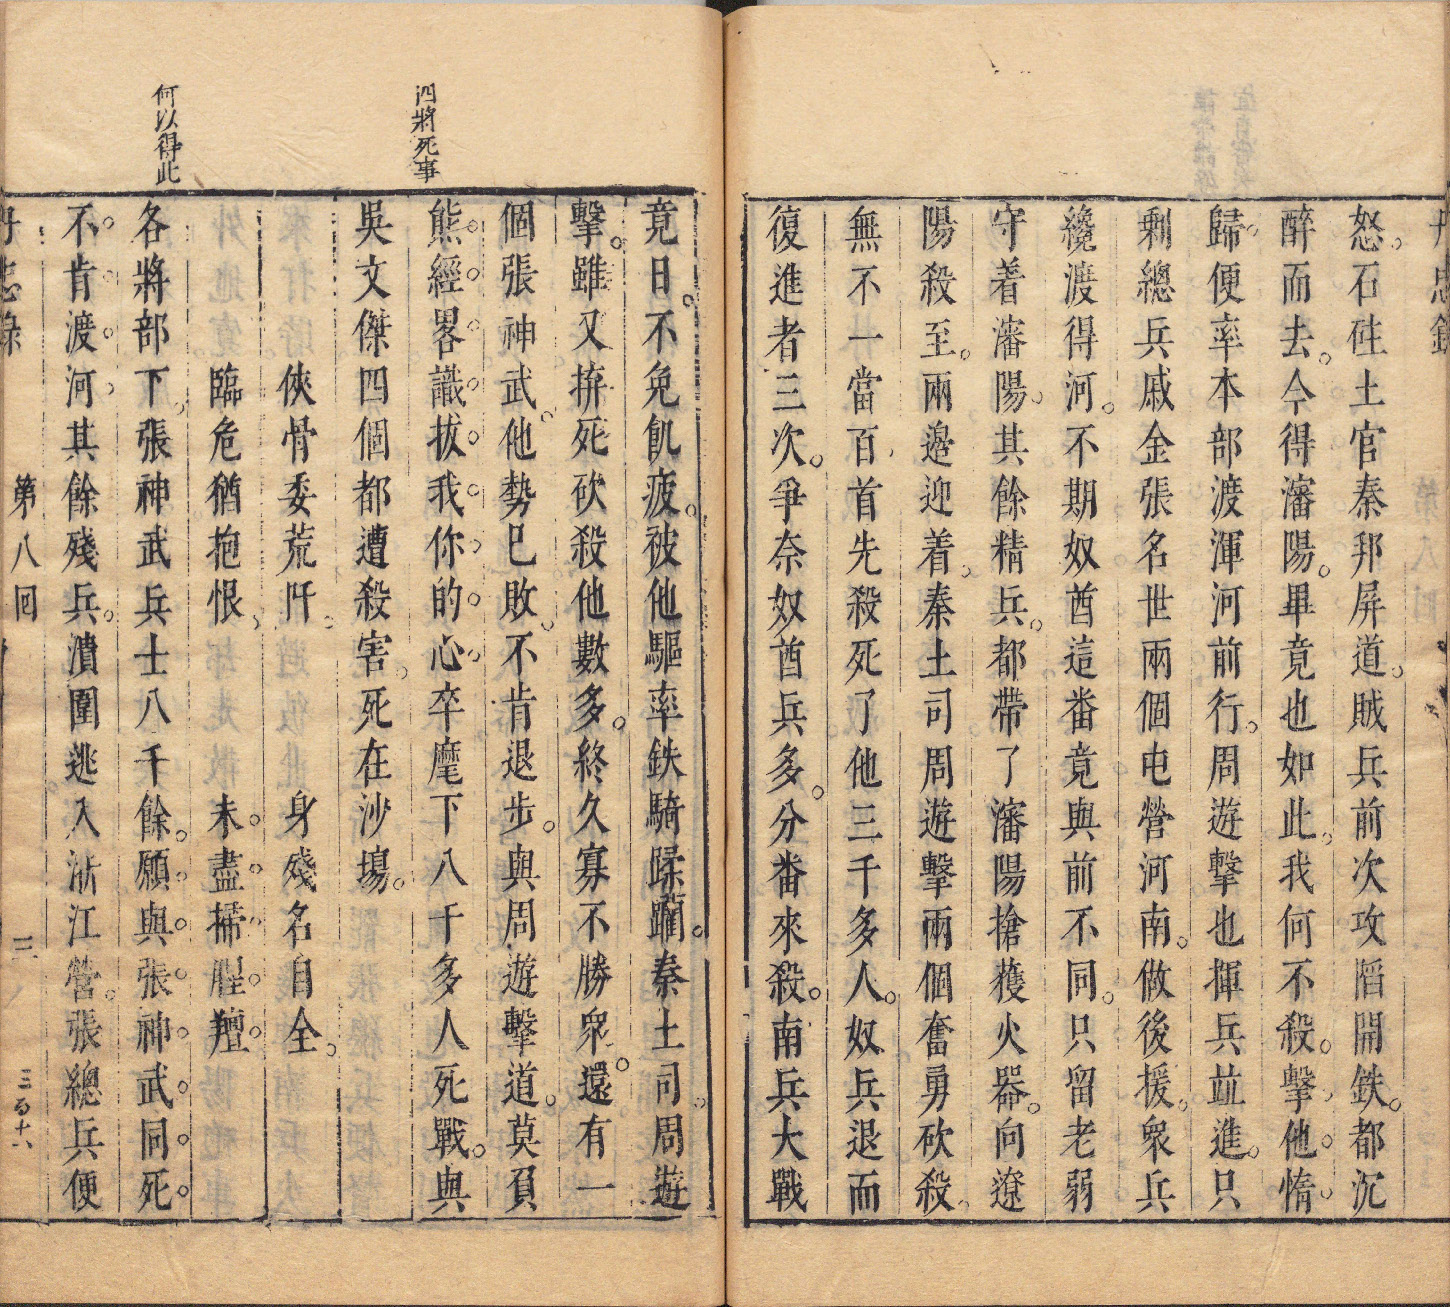 怒石砫土官秦邦屏道賊兵前次攻䧟開鉄都沉
醉而去今得瀋陽畢竟也如此我何不殺擊他惰
歸便率本部渡渾河前行周遊擊也揮兵並進只
剩總兵戚金張名世兩個屯營河南做後援衆兵
纔渡得河不期奴酋這番竟與前不同只留老弱
守着瀋陽其餘精兵都帶了瀋陽搶穫火器向遼
陽殺至兩邉迎着秦土司周遊擊兩個奮勇砍殺
無不一當百首先殺死了他三千多人奴兵退而
復進者三次爭奈奴酋兵多分番來殺南兵大戰
竟日不免飢疲被他驅率鉄騎蹂躪秦土司周遊
擊雖又拚死砍殺他數多終久寡不勝衆還有一
個張神武他勢已敗不肯退步與周遊擊道莫負
熊經畧識拔我你的心卒麾下八千多人死戰與
吳文傑四個都遭殺害死在沙塲
俠骨委荒阡　身殘名自全
臨危猶抱恨　未盡掃腥羶
各將部下張神武兵士八千餘願與張神武同死
不肯渡河其餘殘兵潰圍逃入浙江營張總兵便
四將死事
何以得此
第八回
三